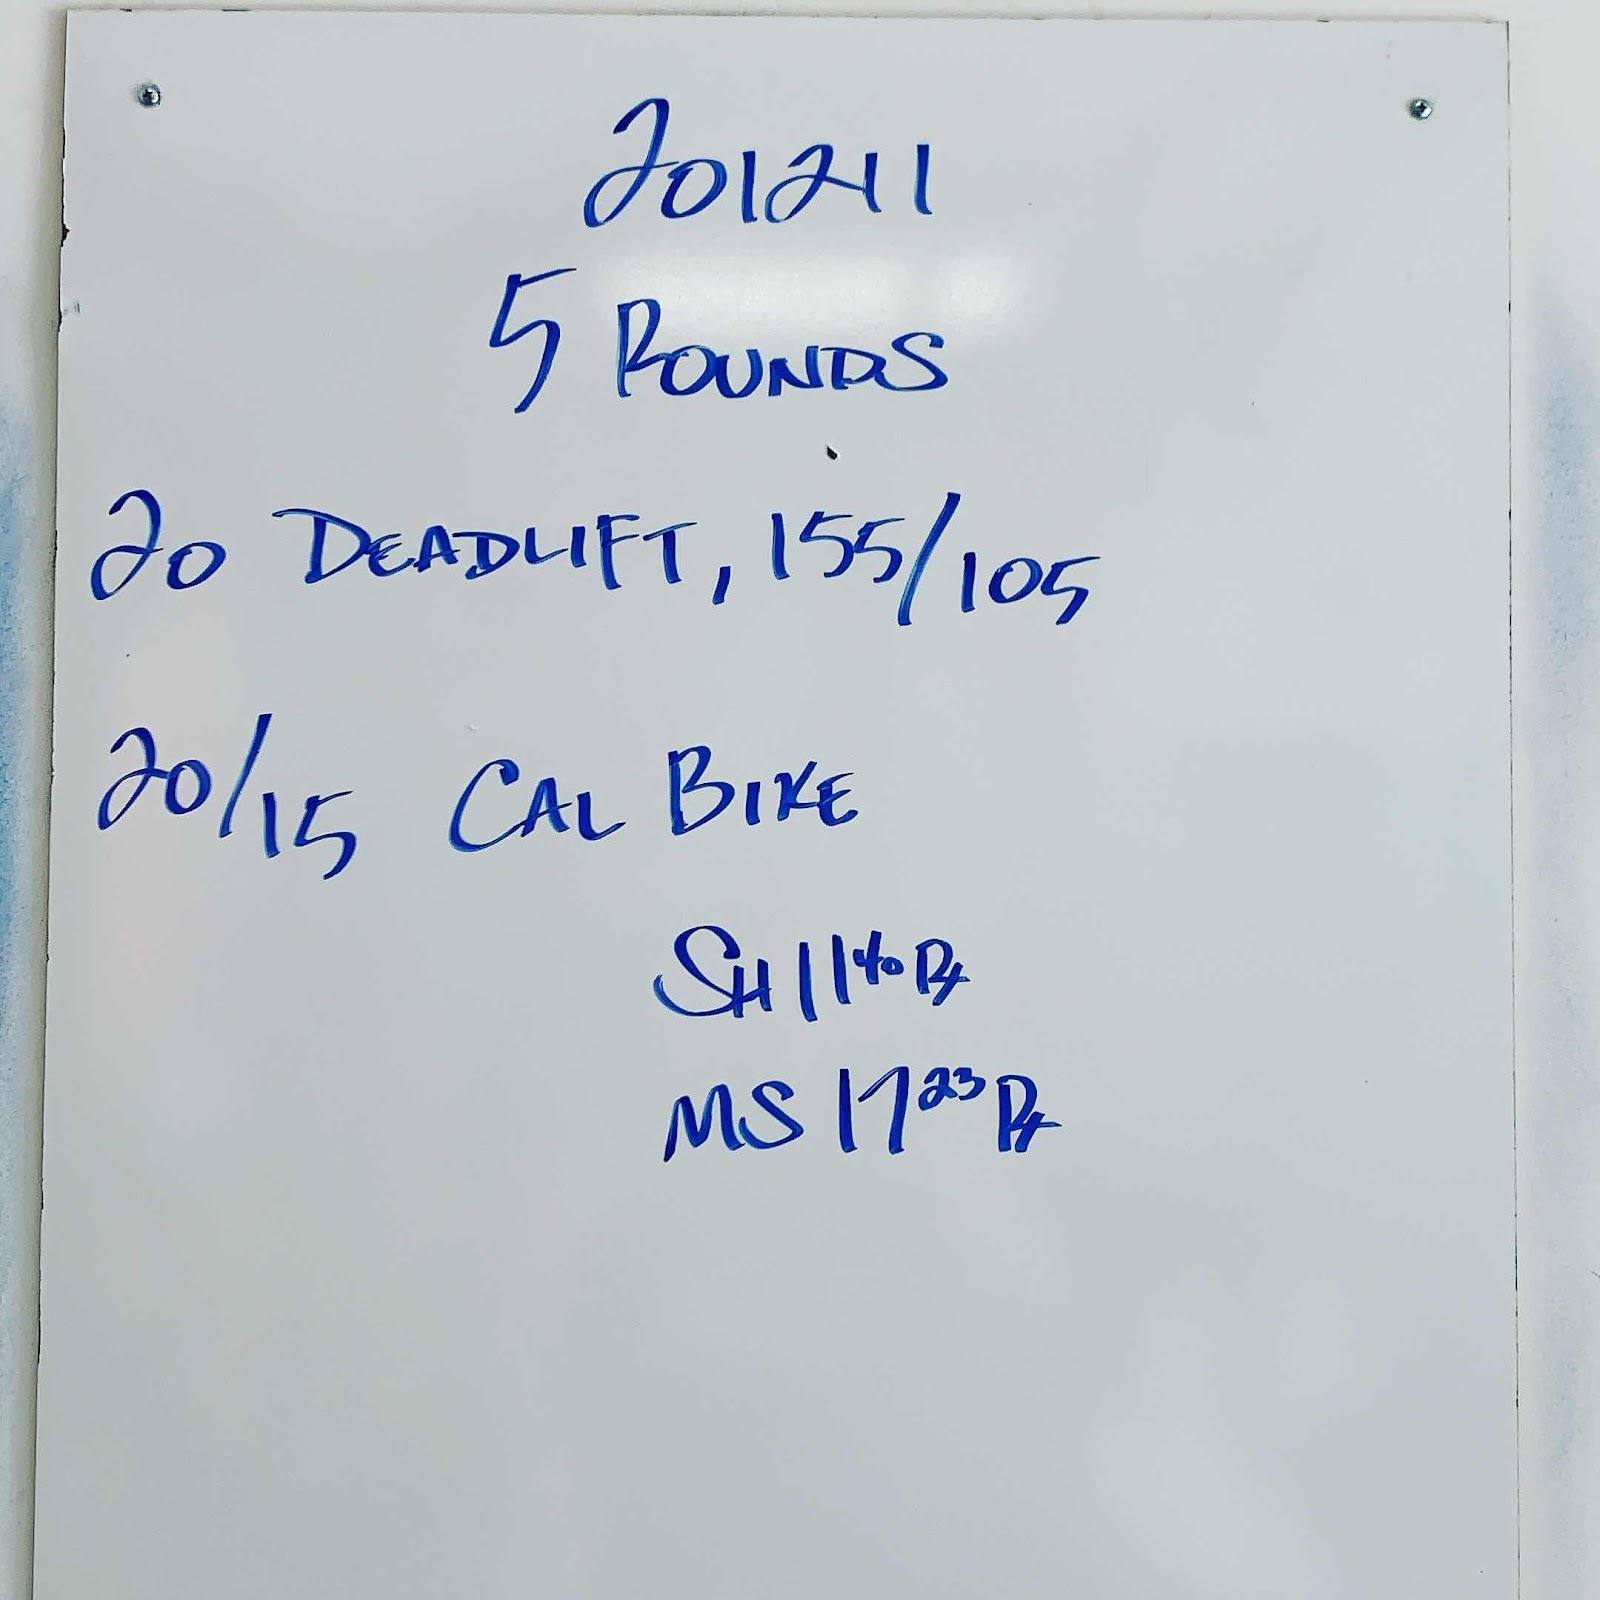 201211
5 ROUNDS
20 DEADLIFT, 155/105
20/15 CAL BIKE
SH 11 40 Rx
MS 17 23 Rx